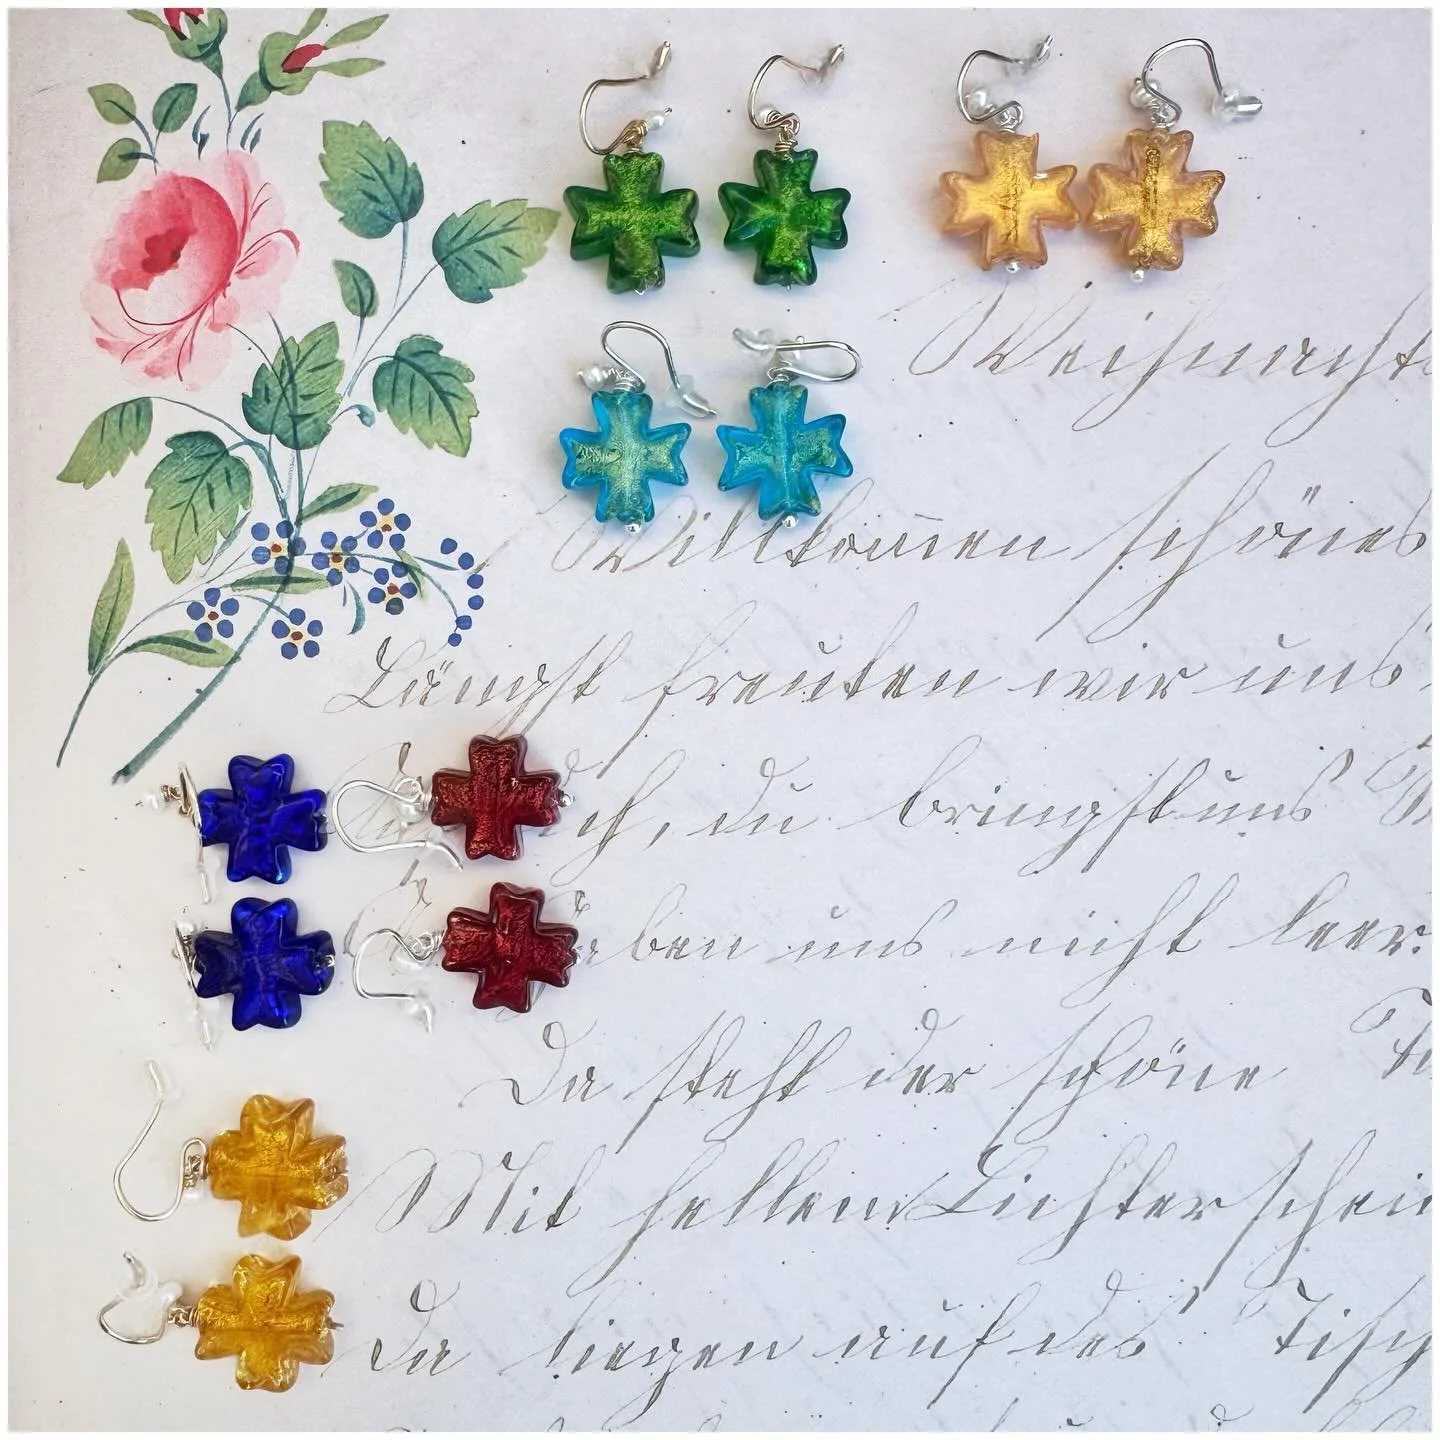 Weihnacht
Willkommen schönes
Längst freuten wir uns
ch, du bringst uns
aben uns nicht leer.
Da steht der schöne
Mit hellem Lichterschein
Da liegen auf des Tisch